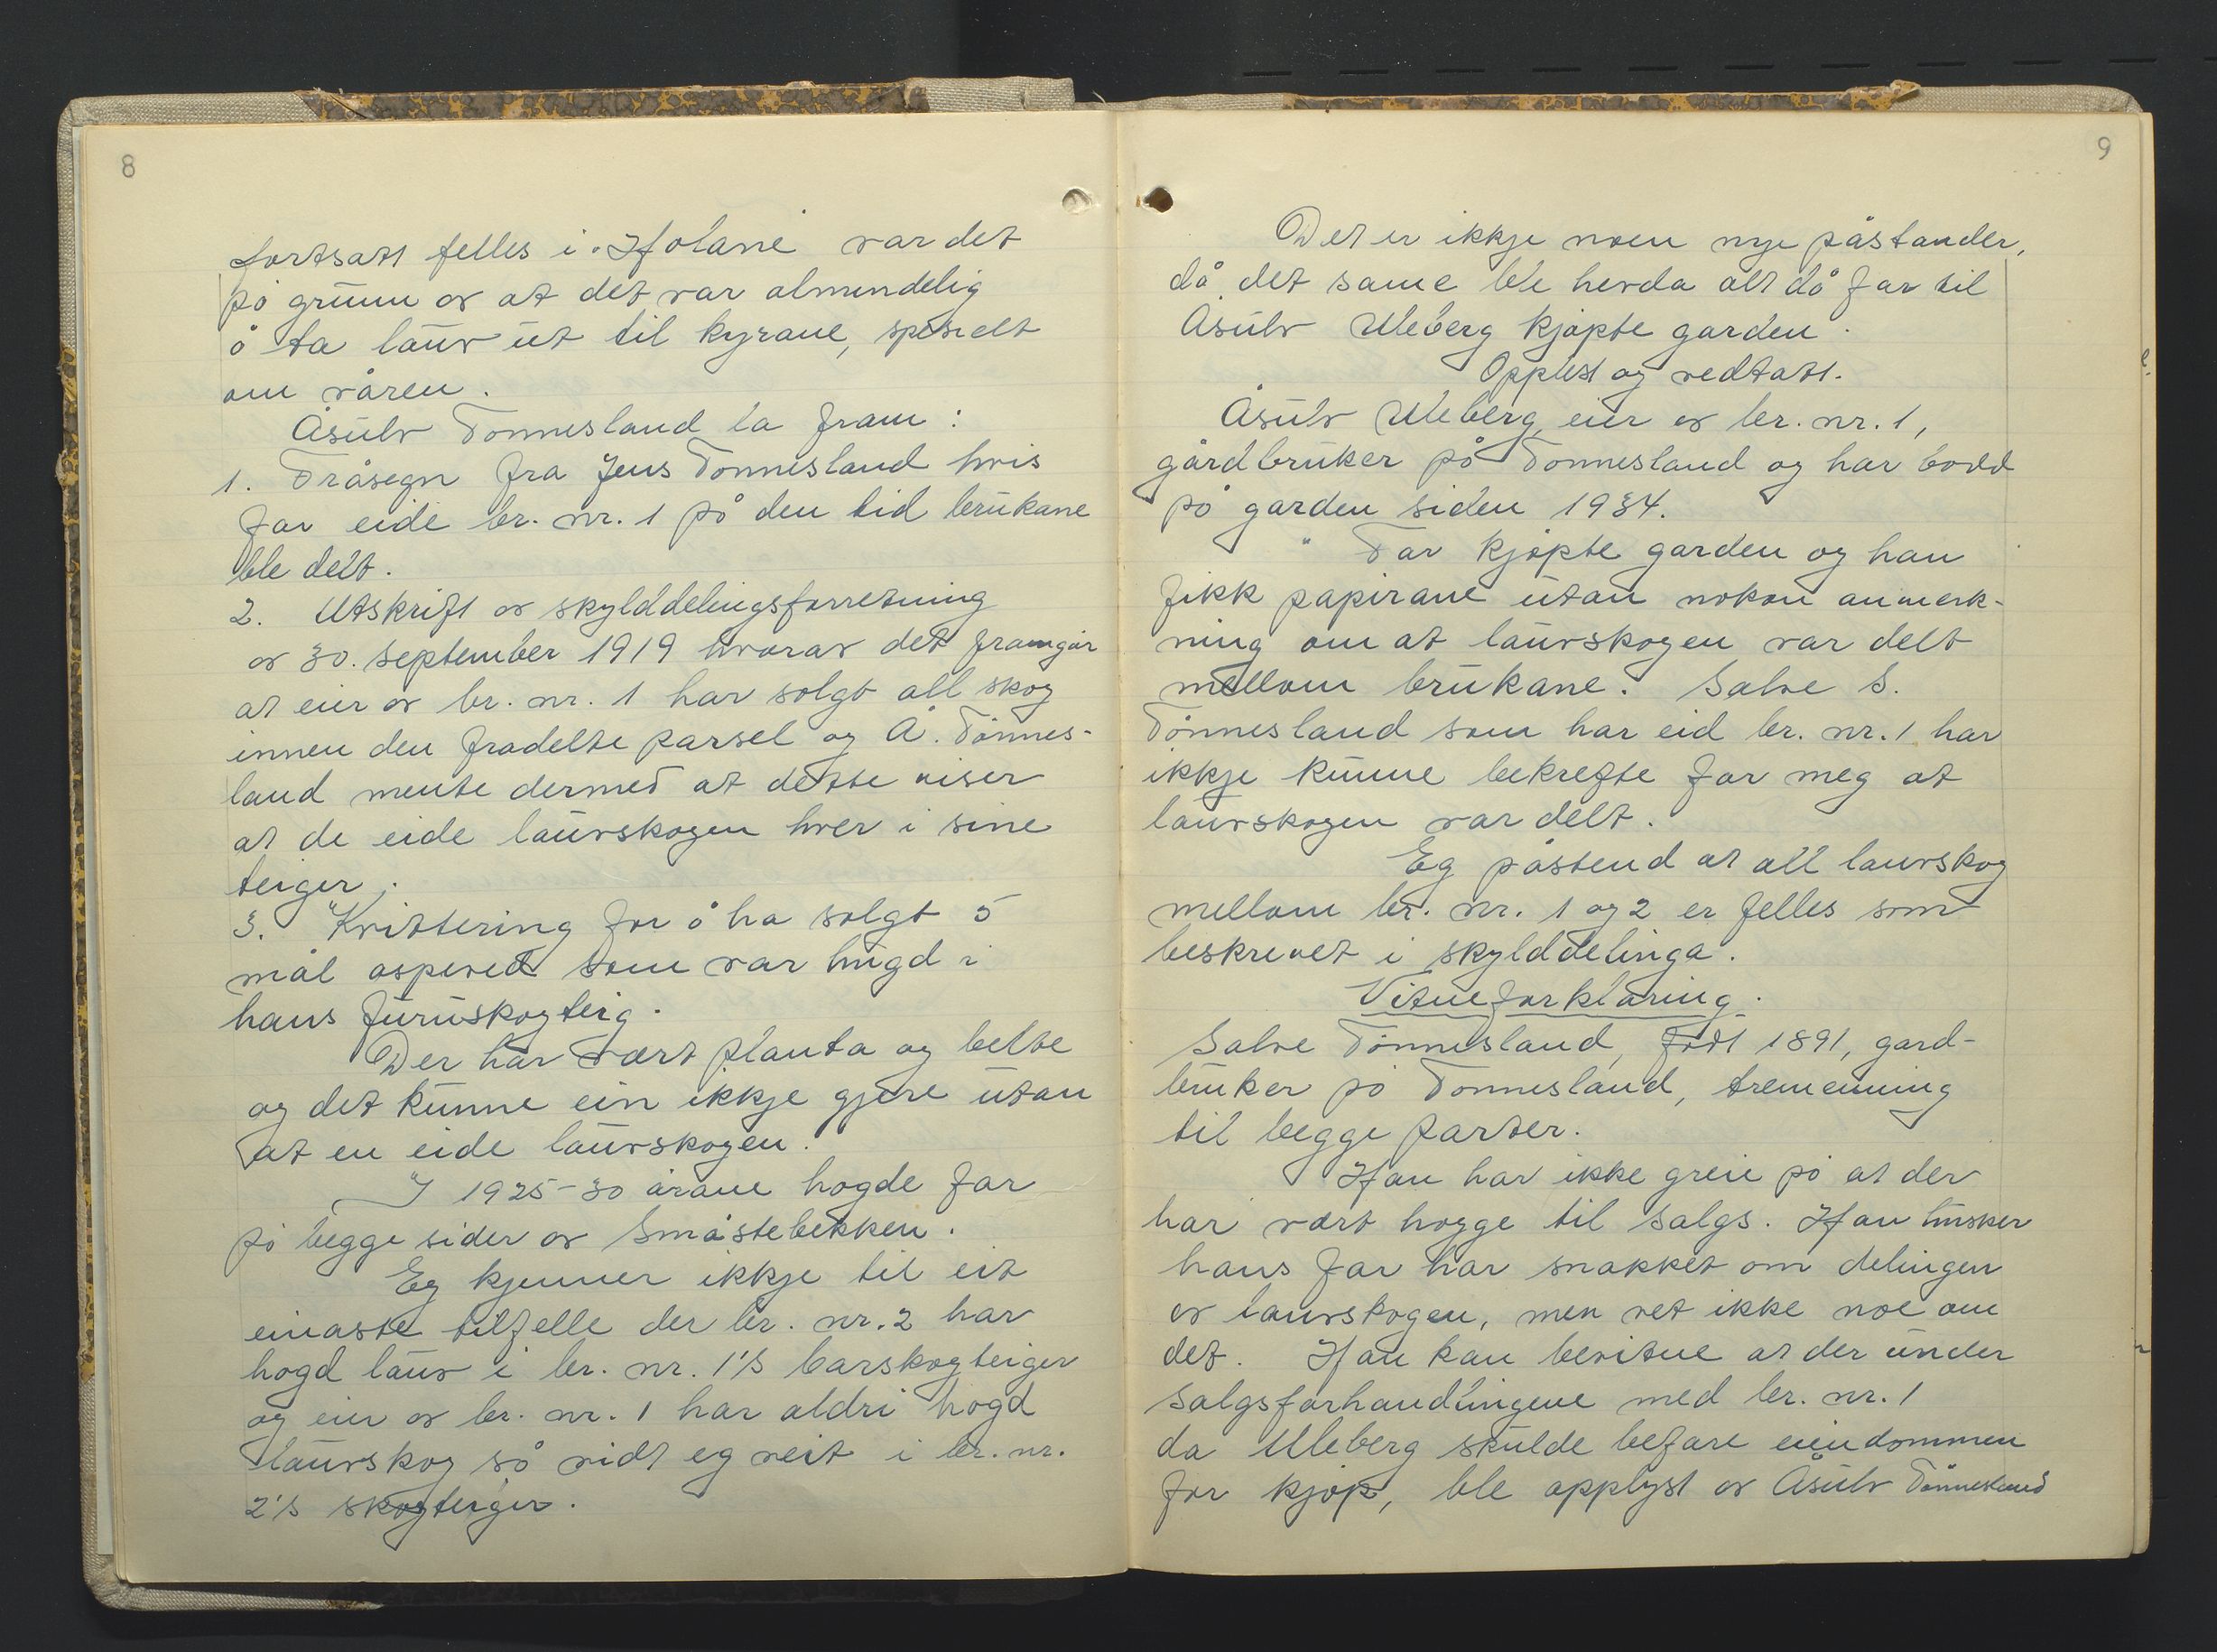 8
fortsatt felles i Holane var det
på grunn av at det var almindelig
å ta lauv ut til kyrane, spesielt
om våren.
Åsulv Tønnesland la fram:
1. Fråsegn fra Jens Tønnesland hvis
far eide br. nr. 1 på den tid brukane
ble delt.
2. Utskrift av skylddelingsforretning
av 30. september 1919 hvorav det framgår
at eier av br. nr. 1 har solgt all skog
innen den fradelte parsel og Å. Tønnes-
land mente dermed at dette viser
at de eide lauvskogen hver i sine
teiger.
3. "Kvittering for å ha solgt 5
mål ospeved som var hugd i
hans furuskogteig.
Der har vært planta og belte
og det kunne ein ikkje gjere utan
at en eide lauvskogen.
I 1925-30 årane hogde far
på begge sider av Småstebekken.
Eg kjenner ikkje til eit
einaste tilfelle der br. nr. 2 har
hogd lauv i br. nr. 1's barskogteiger
og eier av br. nr. 1 har aldri hogd
lauvskog så vidt eg veit i br. nr.
2's skogteiger.
9
Det er ikkje noen nye påstander,
då det same ble hevda alt då far til
Åsulv Uleberg kjøpte garden.
Opplest og vedtatt.
Åsulv Uleberg, eier av br. nr. 1,
gårdbruker på Tønnesland og har bodd
på garden siden 1934.
" Far kjøpte garden og han
fikk papirane utan nokon anmerk-
ning om at lauvskogen var delt
mellom brukane. Salve S.
Tønnesland som har eid br. nr. 1 har
ikkje kunne bekrefte for meg at
lauvskogen var delt.
Eg påstend at all lauvskog
mellom br. nr. 1 og 2 er felles som
beskrevet i skylddelinga.
Vitneforklaring.
Salve Tønnesland, født 1891, gard-
bruker på Tønnesland, tremenning
til begge parter.
Han har ikke greie på at der
har vært hogge til salgs. Han husker
hans far har snakket om delingen
av lauvskogen, men vet ikke noe om
det. Han kan bevitne at der under
salgsforhandlingene med br. nr. 1
da Uleberg skulde befare eiendommen
for kjøp, ble opplyst av Åsulv Tønnesland